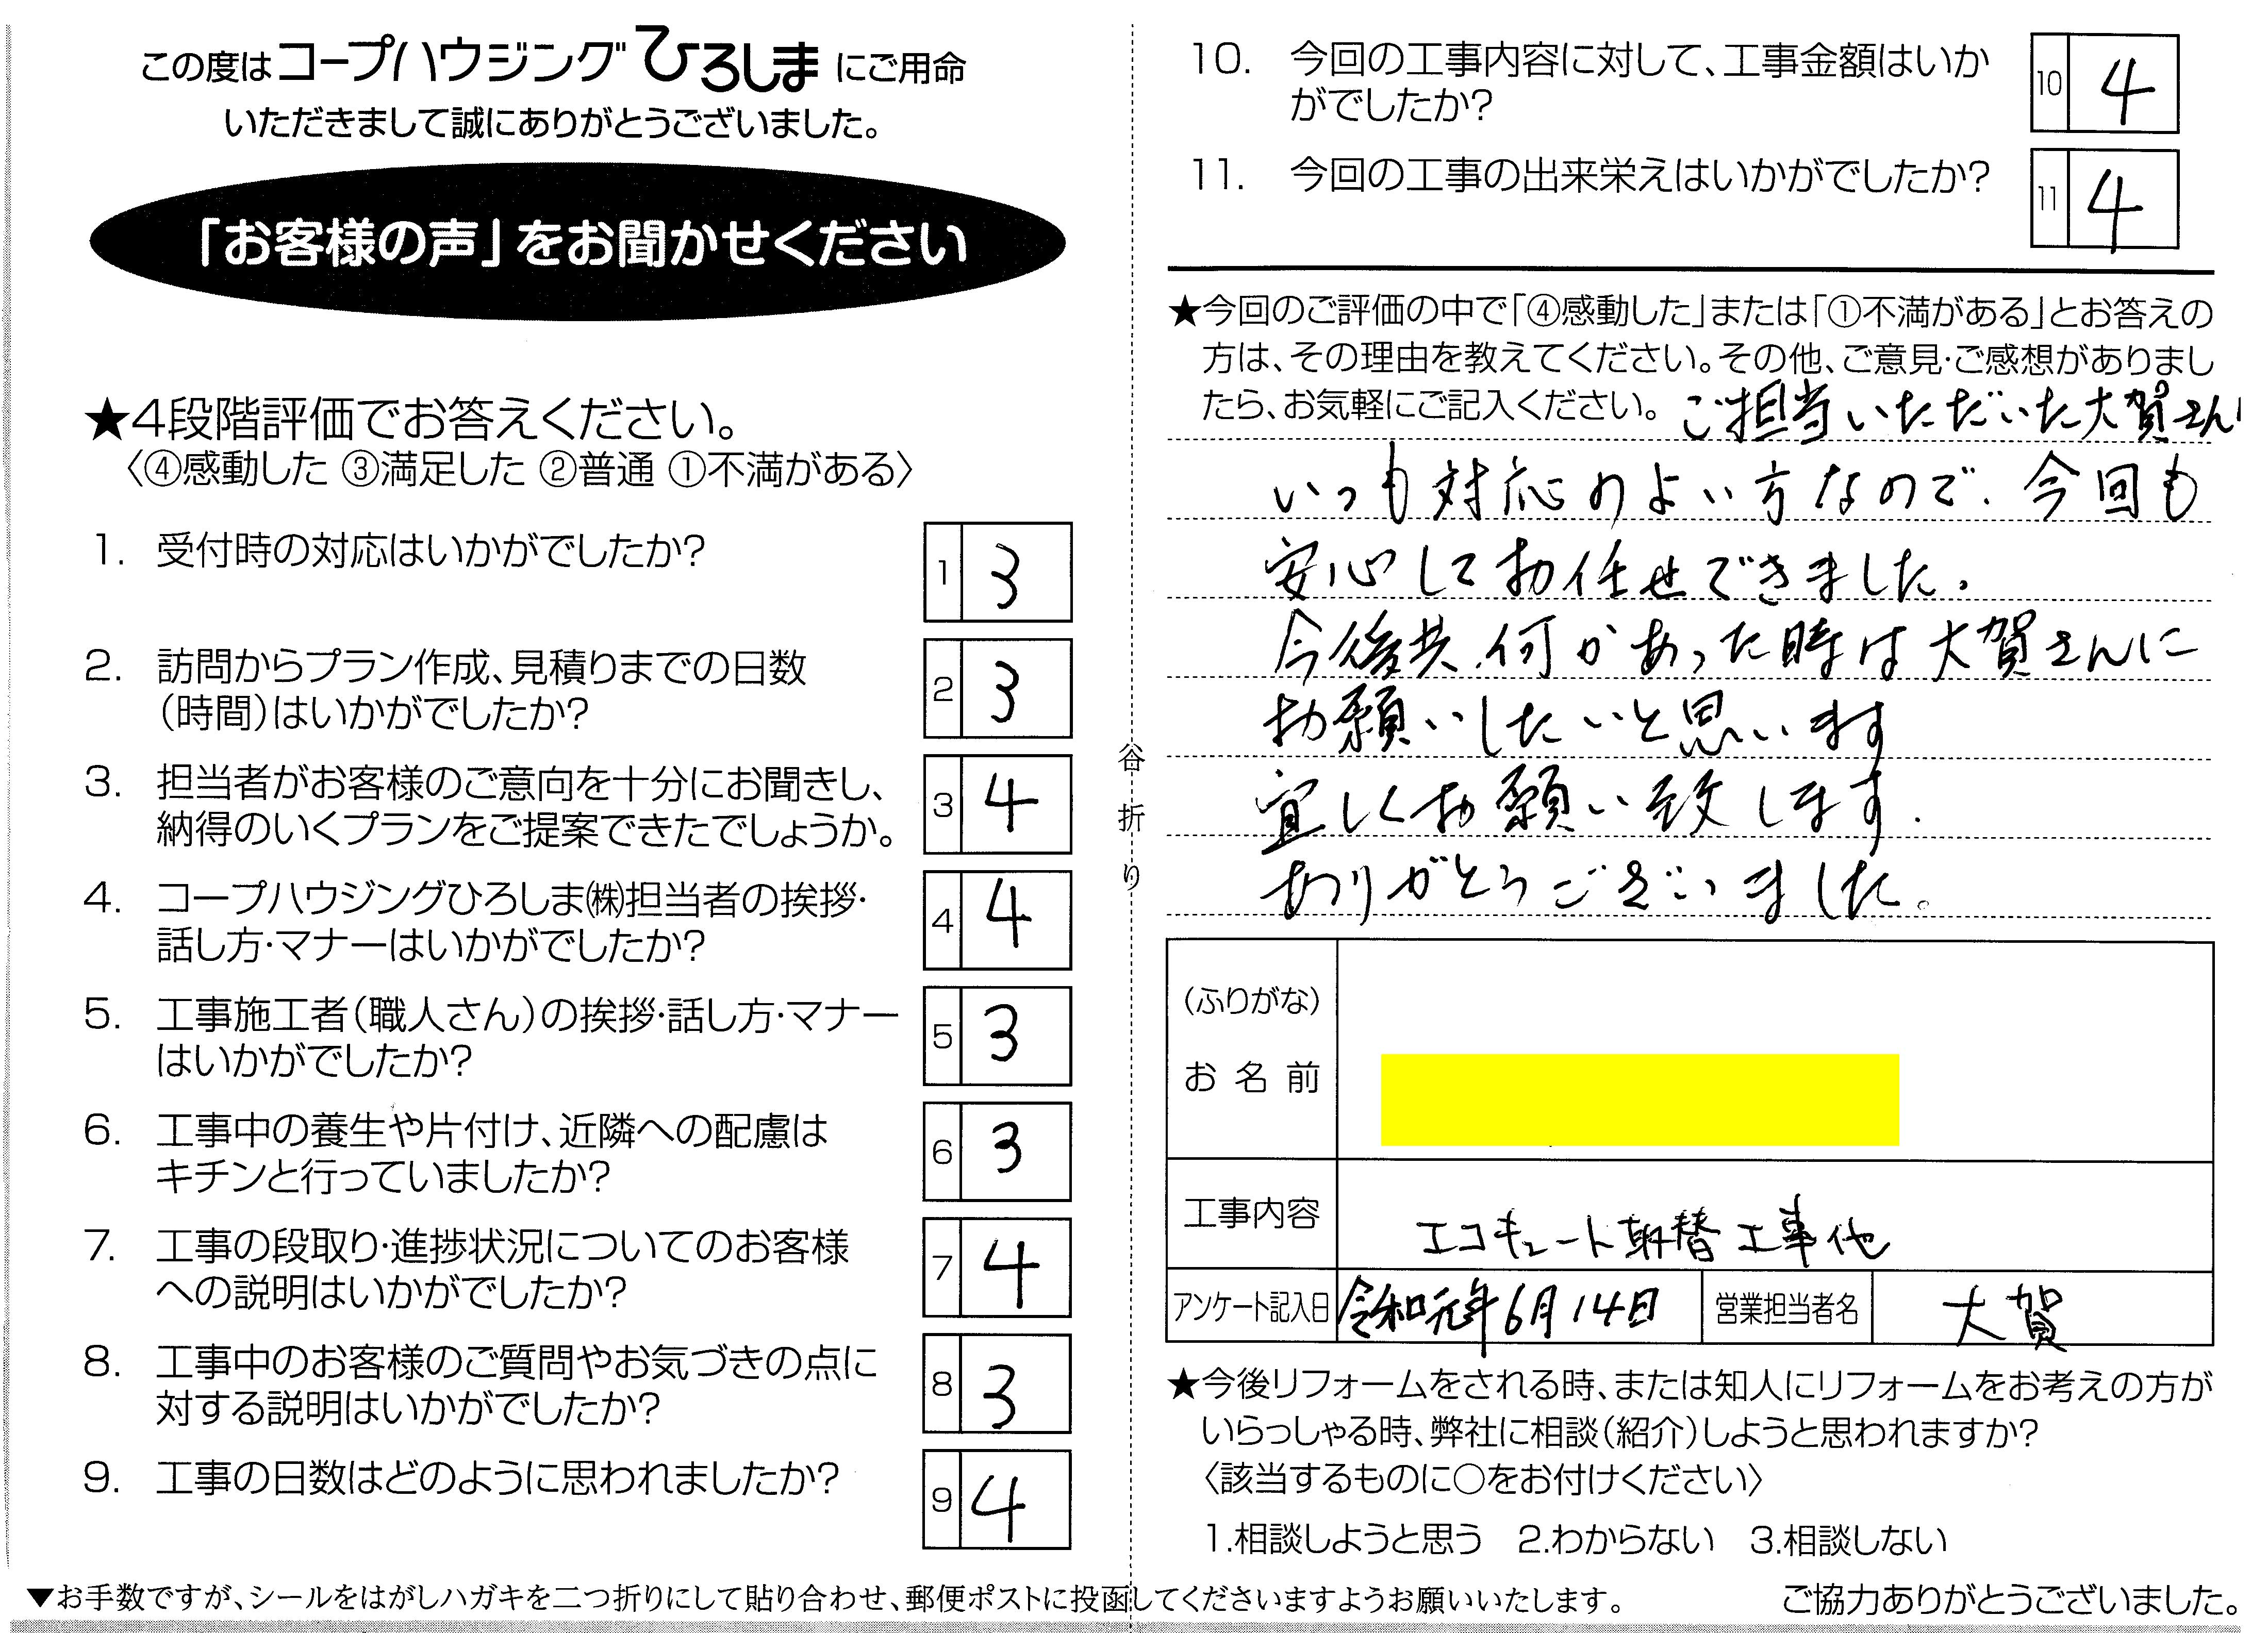 この度はコープハウジングひろしまにご用命
いただきまして誠にありがとうございました。
「お客様の声」をお聞かせください
★4段階評価でお答えください。
〈④感動した ③満足した ②普通 ①不満がある〉
1. 受付時の対応はいかがでしたか? 1 3
2. 訪問からプラン作成、見積りまでの日数
(時間)はいかがでしたか? 2 3
3. 担当者がお客様のご意向を十分にお聞きし、
納得のいくプランをご提案できたでしょうか。 3 4
4. コープハウジングひろしま㈱担当者の挨拶・
話し方・マナーはいかがでしたか? 4 4
5. 工事施工者(職人さん)の挨拶・話し方・マナー
はいかがでしたか? 5 3
6. 工事中の養生や片付け、近隣への配慮は
キチンと行っていましたか? 6 3
7. 工事の段取り・進捗状況についてのお客様
への説明はいかがでしたか? 7 4
8. 工事中のお客様のご質問やお気づきの点に
対する説明はいかがでしたか? 8 3
9. 工事の日数はどのように思われましたか? 9 4
谷折り
10. 今回の工事内容に対して、工事金額はいか
がでしたか? 10 4
11. 今回の工事の出来栄えはいかがでしたか? 11 4
★今回のご評価の中で「④感動した」または「①不満がある」とお答えの
方は、その理由を教えてください。その他、ご意見・ご感想がありまし
たら、お気軽にご記入ください。 ご担当いただいた大賀さん
いつも対応のよい方なので、今回も
安心してお任せできました。
今後共、何かあった時は大賀さんに
お願いしたいと思います
宜しくお願い致します.
ありがとうございました。
(ふりがな)
お名前
工事内容 エコキュート取替工事他
アンケート記入日 令和元年6月14日 営業担当者名 大賀
★今後リフォームをされる時、または知人にリフォームをお考えの方が
いらっしゃる時、弊社に相談(紹介)しようと思われますか?
〈該当するものに○をお付けください〉
1.相談しようと思う 2.わからない 3.相談しない
▼お手数ですが、シールをはがしハガキを二つ折りにして貼り合わせ、郵便ポストに投函してくださいますようお願いいたします。 ご協力ありがとうございました。